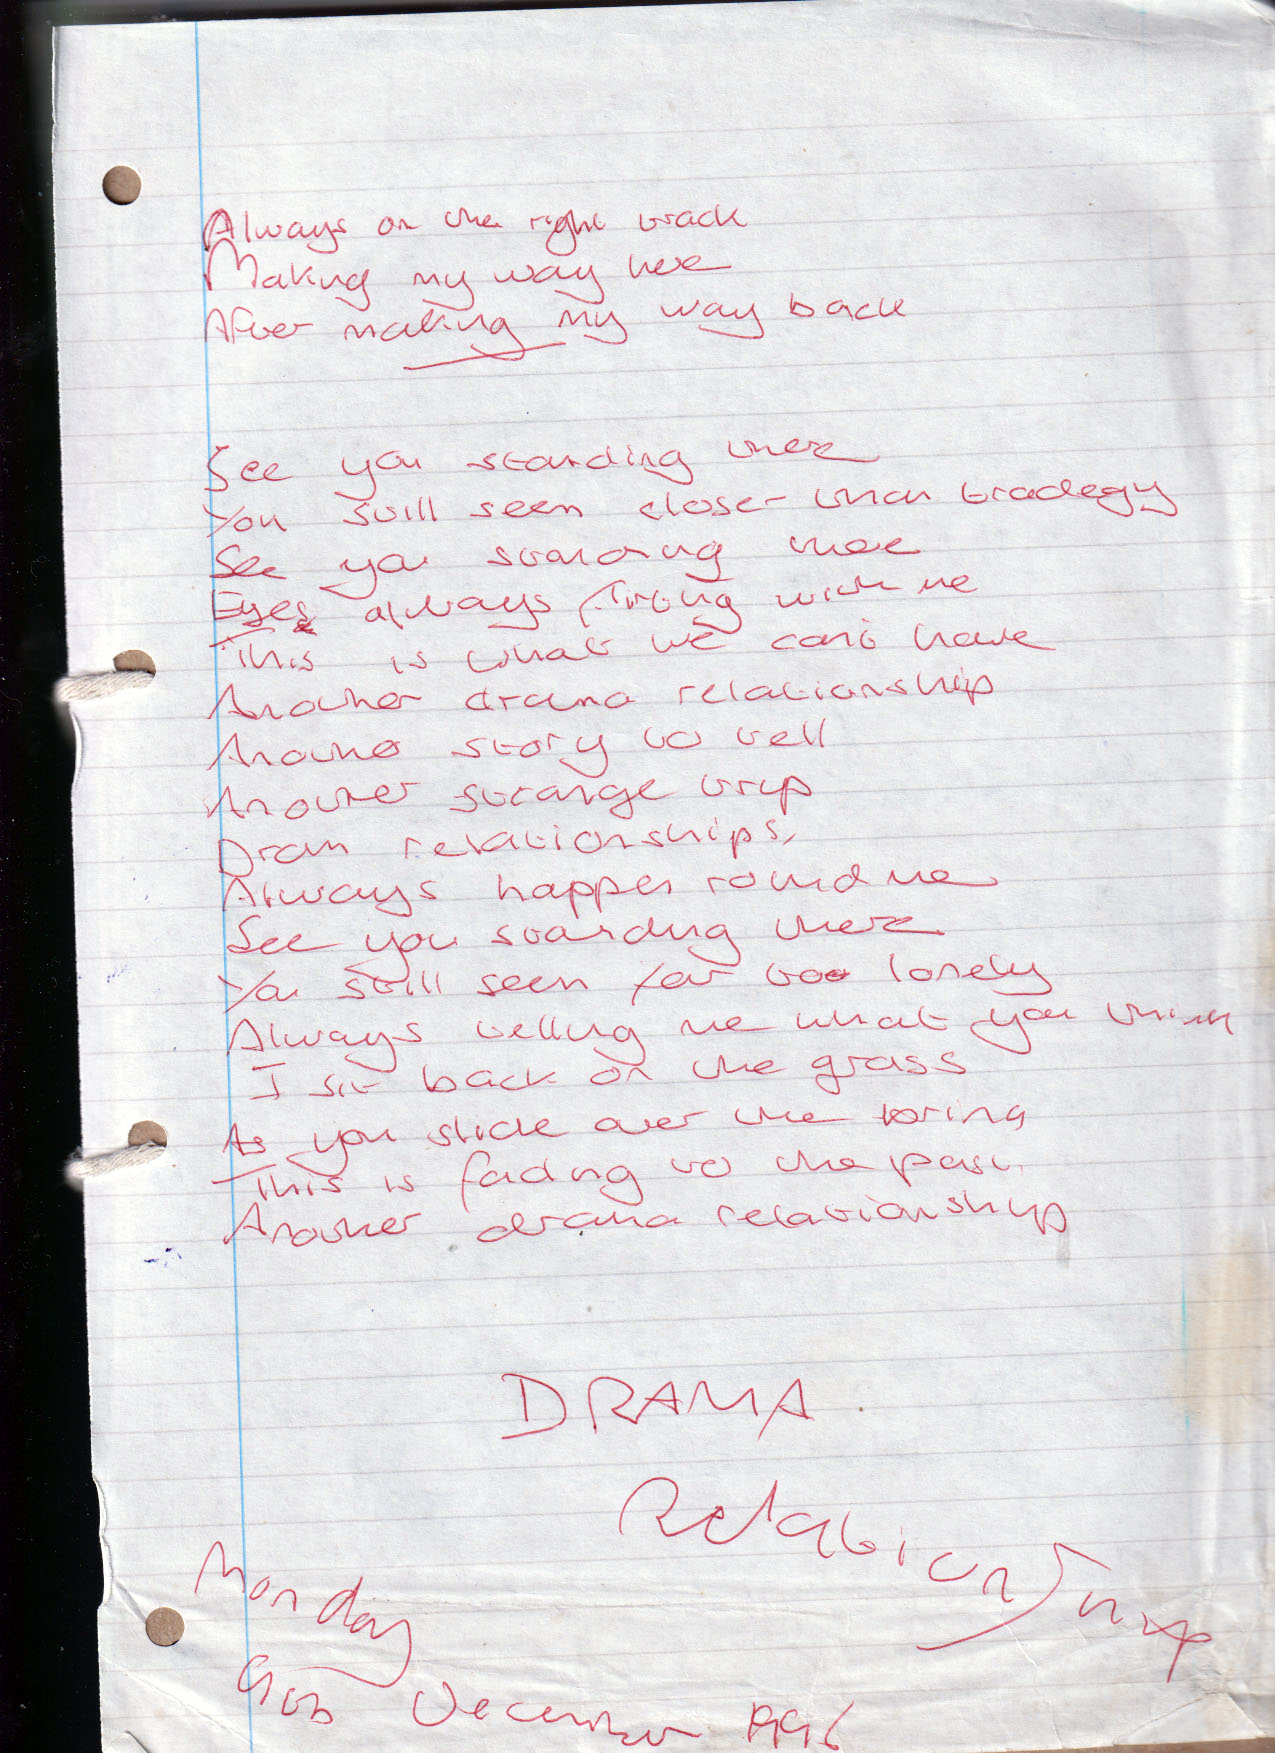 Always on the right track
Making my way here
After making my way back
See you standing there
You still seem closer than tradegy
See you standing there
Eyes always flirting with me
This is what we can't have
Another drama relationship
Another story to tell
Another strange trip
Dram relationships,
Always happen round me
See you standing there
You still seem far too lonely
Always telling me what you think
I sit back on the grass
As you slide over the
This is fading to the past.
Another drama relationship
DRAMA
Relationship
Monday
9th December 1996